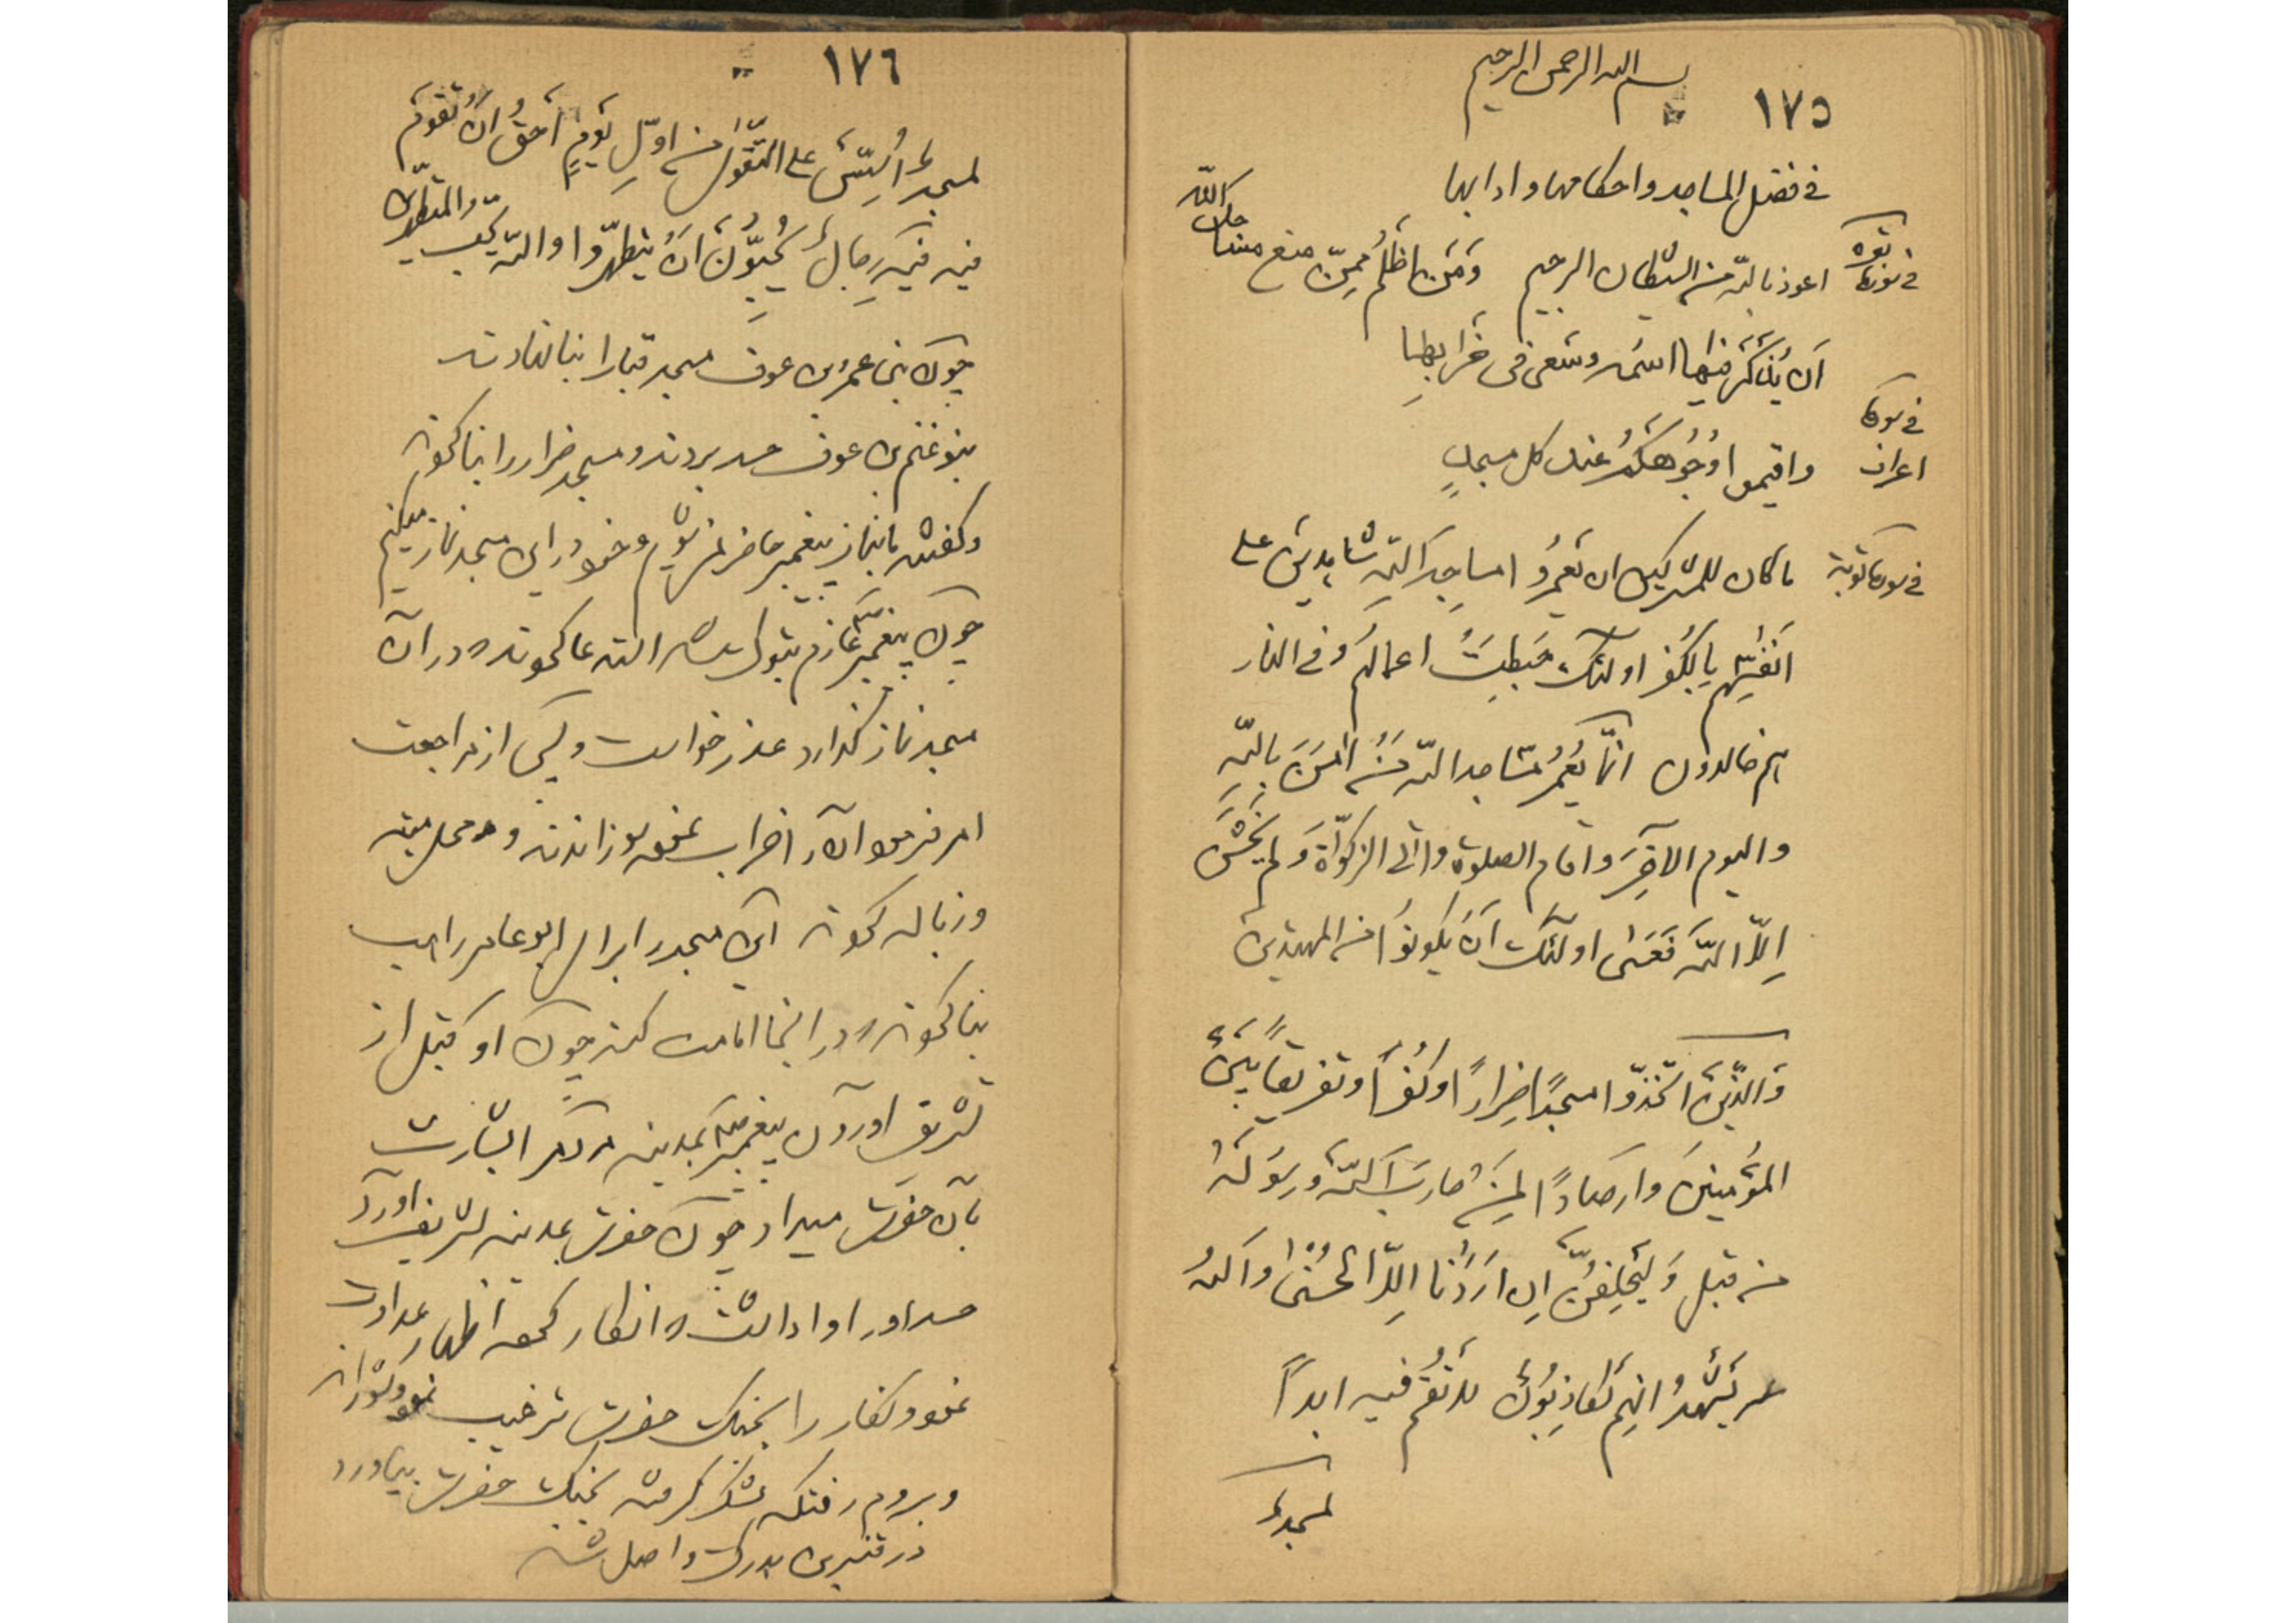 بسم الله الرحمن الرحیم
١٧٥
فی فضل المساجد و احکامها و ادابها
فی سورة بقره اعوذ بالله من الشیطان الرجیم وَمَنْ اظْلَمُ مِمَّن منع مساجد الله
اَن یُذْکَرَ فیها اسمه وسَعی فی خَرابِها
فی سورة اعراف واقیموا وُجُوهَکُمْ عند کل مسجدٍ
فی سورة توبة ما کان للمشرکین ان یَعْمُرُوا مساجِدَ اللهِ شاهدینَ علی
اَنْفُسِهِم بِالکُفرِ اولئک حَبِطَتْ اعمالهُمْ وَ فی النار
هم خالدون انّما یَعْمُرُ مَساجد اللّه مَنْ اٰمَنَ بِاللّهِ
والیوم الآخِرَ و اقام الصلوة و اتی الزکوٰةَ وَلم یَخْشَ
اِلّا اللّهَ فَعَسٰی اولٰئک اَنْ یکونُوا من المهتدین
وَالَّذینَ اتَّخَذُوا مسجدًا ضِرارًا وکُفْرًا وتفریقًا بَیْنَ
المؤمنینَ وارصادًا لِمَنْ حارَبَ اللّهَ ورسولَهُ
من قبل وَلَیَحْلِفُنَّ اِن اَرَدْنا اِلّا الحُسْنٰی واللّهُ
یَشْهَدُ انهم لَکاذِبُونَ لا تَقُمْ فیه ابداً
لمسجدٌ
١٧٦
لمسجدٌ اُسِّسَ علی التَّقْوٰی من اوّلِ یَومٍ اَحَقُّ اَنْ تقومَ
فیه فیهِ رِجالٌ یُحِبُّونَ اَنْ یتطهّروا واللّه یحبّ المتطهّرین
چون بنی عمرو بن عوف مسجد قبا را بنا نهادند
بنو غنم بن عوف حسد بردند و مسجد ضرار را بنا کردند
و گفتند ما بنماز پیغمبر حاضر نمیشویم و خود در این مسجد نماز میکنیم
چون پیغمبر عازم تبوک شد التماس کردند در آن
مسجد نماز گذارد عذر خواست و پس از مراجعت
امر فرمود آن را خراب نموده سوزاندند و محل میته
و زباله کردند این مسجد را برای ابو عامر راهب
بنا کردند در اینجا امامت کند چون او قبل از
تشریف آوردن پیغمبر بمدینه مردم را بشارت
بآن حضرت میداد چون حضرت بمدینه تشریف آورد
حسد او را وا داشت و انکار کرده اظهار عداوت
نمود و کفار را بجنگ حضرت ترغیب نمود
و بروم رفت که لشکر گرفته بجنگ حضرت بیاورد
در قنسرین بدرک واصل شد